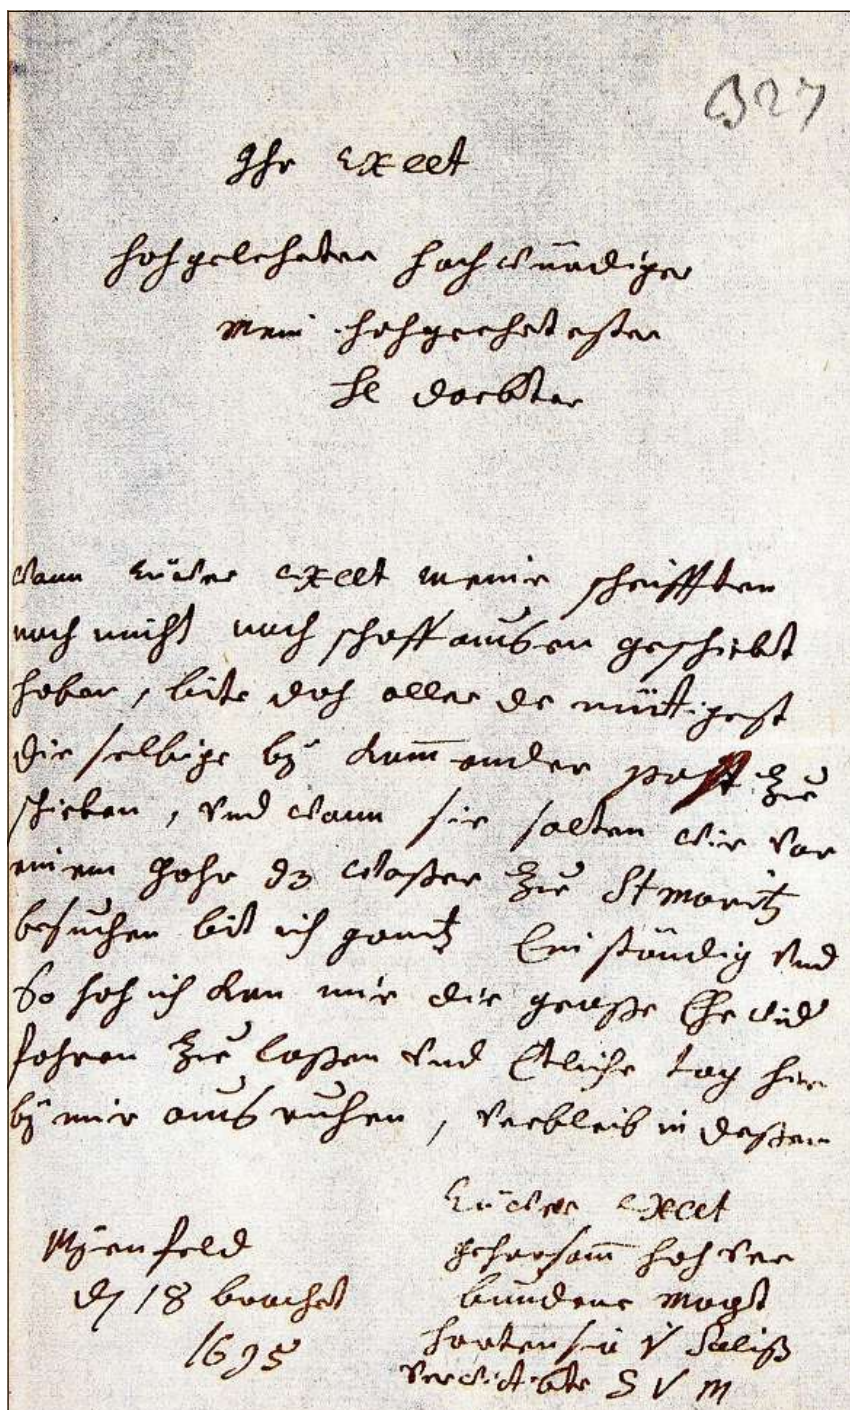 327
Ihr Exelt
hohgelehrter hochwürdiger
mein hohgeehrtester
H dockter
wann Eüwer exelt meine schrifften
noch nicht noch schaffhausen geschickt
haben, bite doch aller de mütigest
die selbige by kumender post zu
schicken, und wann sie solten wie vor
einem Johr dz wasser zu St moritz
besuchen bit ich gantz Einständig und
So hoh ich kan mir die grosse Ehr wid
fahren zu lassen und Etliche tag hier
by mir ausruhen, verbleib in dessen
Eüwer exelt
Myenfeld gehorsam hoh ver
dn 18 brachet bundene magt
1695 hortensia V Saliss
verwitibte G V M